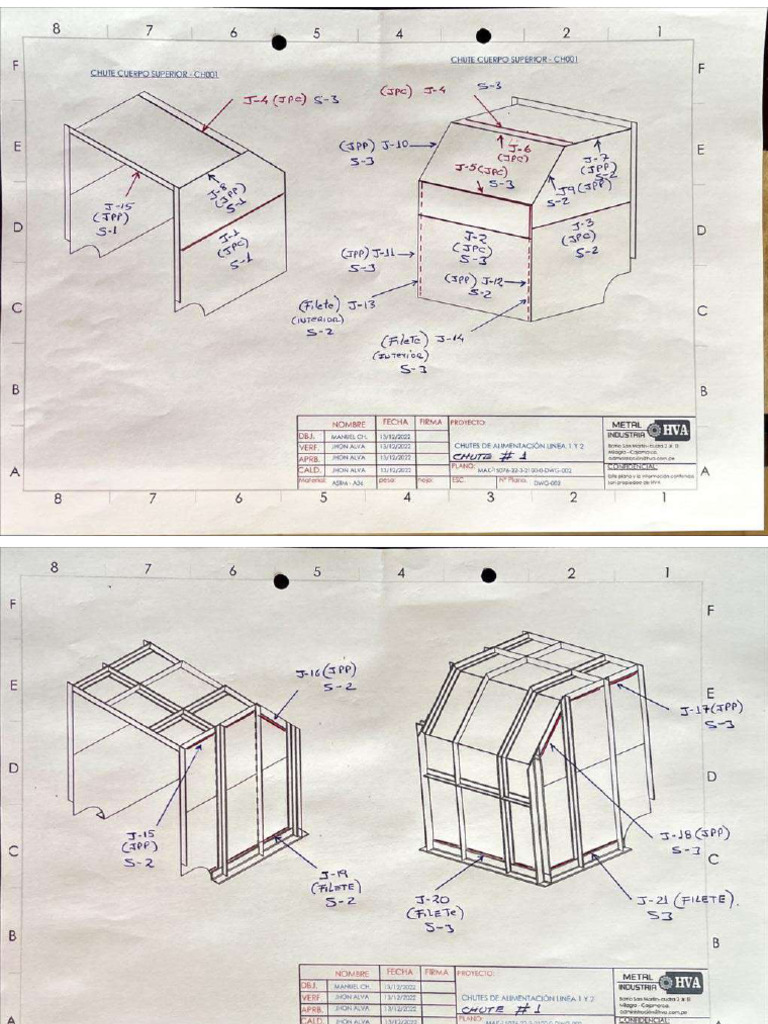 8 7 6 5 4 2 1
CHUTE CUERPO SUPERIOR - CH001
CHUTE CUERPO SUPERIOR - CH001
F
F
J-4 (JPC) S-3
(JPC) J-4 S-3
E
E
(JPP) J-10
S-3
J-6
(JPC)
J-7
(JPP)
S-2
J-5 (JPC)
S-3
J9 (JPP)
S-2
J-8
(JPP)
S-1
J-15
(JPP)
S-1
D
D
J-1
(JPC)
S-1
J-2
(JPC)
S-3
J-3
(JPC)
S-2
(JPP) J-11
S-3
(JPP) J-12
S-2
C
C
(Filete) J-13
(INTERIOR)
S-2
(FileTe) J-14
(INTERIOR)
S-3
B
B
NOMBRE FECHA FIRMA PROYECTO:
DBJ. MANUEL CH. 13/12/2022
VERF. JHON ALVA 13/12/2022 CHUTES DE ALIMENTACIÓN LINEA 1 Y 2
APRB. JHON ALVA 13/12/2022 CHUTE # 1
CALD. JHON ALVA 13/12/2022 PLANO:
Material: peso: hoja: ESC. N° Plano. DWG-002
METAL
INDUSTRIA HVA
CONFIDENCIAL:
A
A
8 7 6 5 4 3 2 1
8 7 6 5 4 2 1
F
F
J-16 (JPP)
S-2
E
E
J-17 (JPP)
S-3
D
D
J-15
(JPP)
S-2
J-18 (JPP)
S-3
C
C
J-19
(FILETE)
S-2
J-20
(FileTe)
S-3
J-21 (FILETE).
S3
B
B
NOMBRE FECHA FIRMA PROYECTO:
DBJ. MANUEL CH. 13/12/2022
VERF JHON ALVA 13/12/2022 CHUTES DE ALIMENTACIÓN LINEA 1 Y 2
APRB. JHON ALVA 13/12/2022 CHUTE # 1
CALD. JHON ALVA 13/12/2022 PLANO:
METAL
INDUSTRIA HVA
CONFIDENCIAL:
A